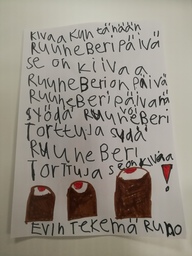 KIVAA KUN tÄNÄÄN
RUUNEBERI PÄIVÄ
SE ON KIIVAA
RUUNEBERION PÄIVÄ
RUUNEBERI PÄIVÄNÄ
SYÖDÄ RUUNEBERI
TORTTUJA SYÖDÄ
RUUNEBERI
TORTTUJA SEON KIVAA!
EVIN TEKEMÄ RUNO